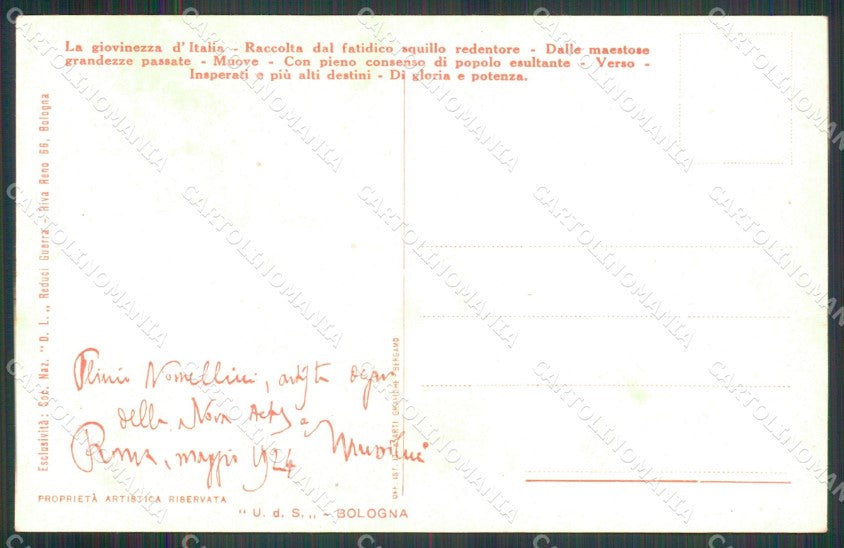 La giovinezza d'Italia - Raccolta dal fatidico squillo redentore - Dalle maestose
grandezze passate - Muove - Con pieno consenso di popolo esultante - Verso -
Insperati e più alti destini - Di gloria e potenza.
Esclusività: Coc. Naz. "D. L.„ Reduci Guerra - Riva Reno 66, Bologna
Plinio Nomellini, artista degno
della Nova
Roma, maggio 1924
Mussolini
PROPRIETÀ ARTISTICA RISERVATA
OFF. IST. IT. ARTI GRAFICHE BERGAMO
"U. d S.„ - BOLOGNA
CARTOLINOMANIA